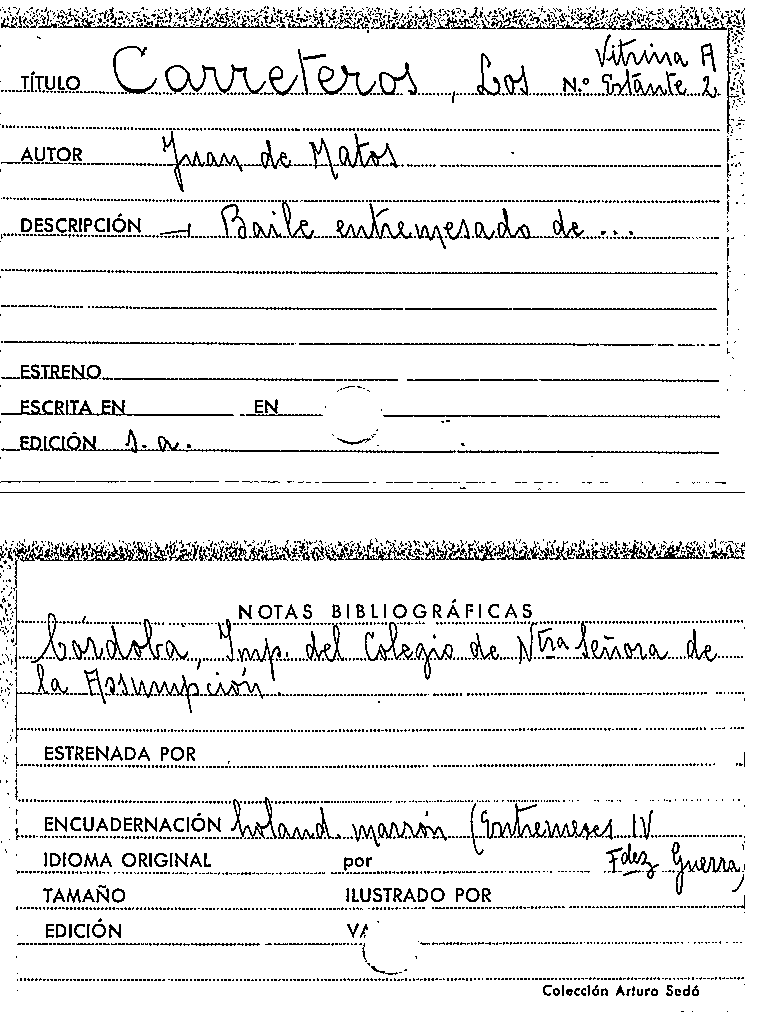 Vitrina A
TÍTULO Carreteros, Los N.º Estante 2
AUTOR Juan de Matos
DESCRIPCIÓN → Baile entremesado de ...
ESTRENO
ESCRITA EN EN
EDICIÓN s.a.
NOTAS BIBLIOGRÁFICAS
Córdoba, Imp. del Colegio de Ntra Señora de
la Assumpción.
ESTRENADA POR
ENCUADERNACIÓN holand. marrón (Entremeses IV
IDIOMA ORIGINAL por Fdez Guerra)
TAMAÑO ILUSTRADO POR
EDICIÓN
Colección Arturo Sedó